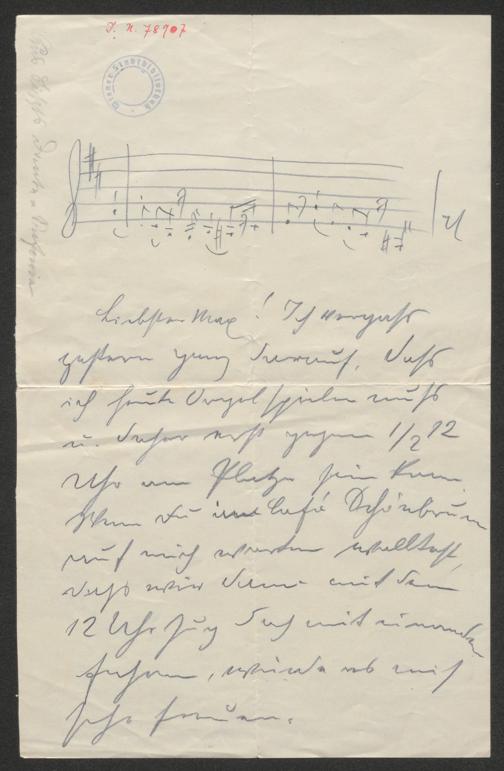 I. N. 78907
Wiener Stadtbibliothek
Liebster Max! Ich vergaß
gestern ganz darauf, daß
ich heute Orgel spielen muß
u. daher erst gegen 1/2 12
Uhr am Platze sein kann.
Wenn Du im Café Schönbrunn
auf mich warten wolltest,
daß wir dann mit dem
12 Uhr Zug doch miteinander
fahren, würde es mich
sehr freuen.